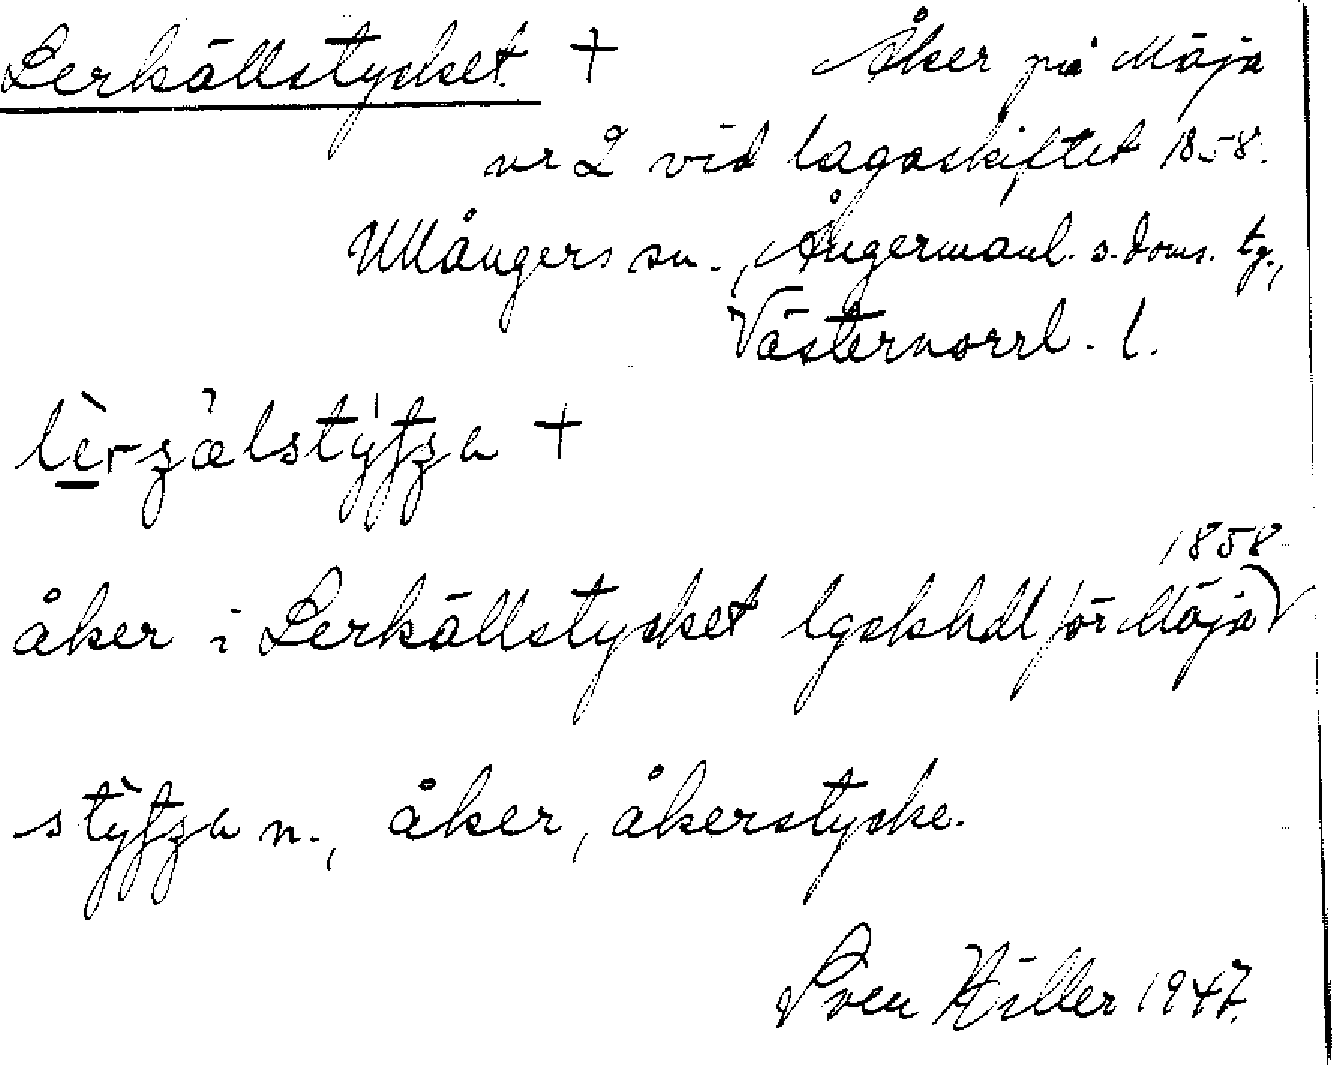 Lerkällstycket + Åker på Mäja
nr 2 vid lagaskiftet 1858.
Ullångers sn., Ångermanl. s. doms. tg.,
Västernorrl. l.
åker i Lerkällstycket lgskhdl för Mäja 1858
n., åker, åkerstycke.
Sven Hiller 1947.